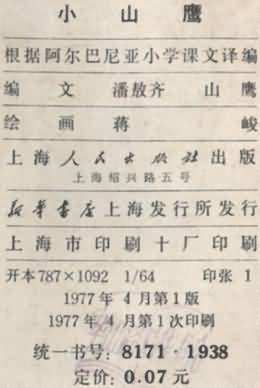 小山鹰
根据阿尔巴尼亚小学课文译编
编文 潘敖齐 山鹰
绘画 蒋峻
上海人民出版社出版
上海绍兴路五号
新华书店上海发行所发行
上海市印刷十厂印刷
开本787×1092 1/64 印张1
1977年4月第1版
1977年4月第1次印刷
统一书号：8171·1938
定价：0.07元